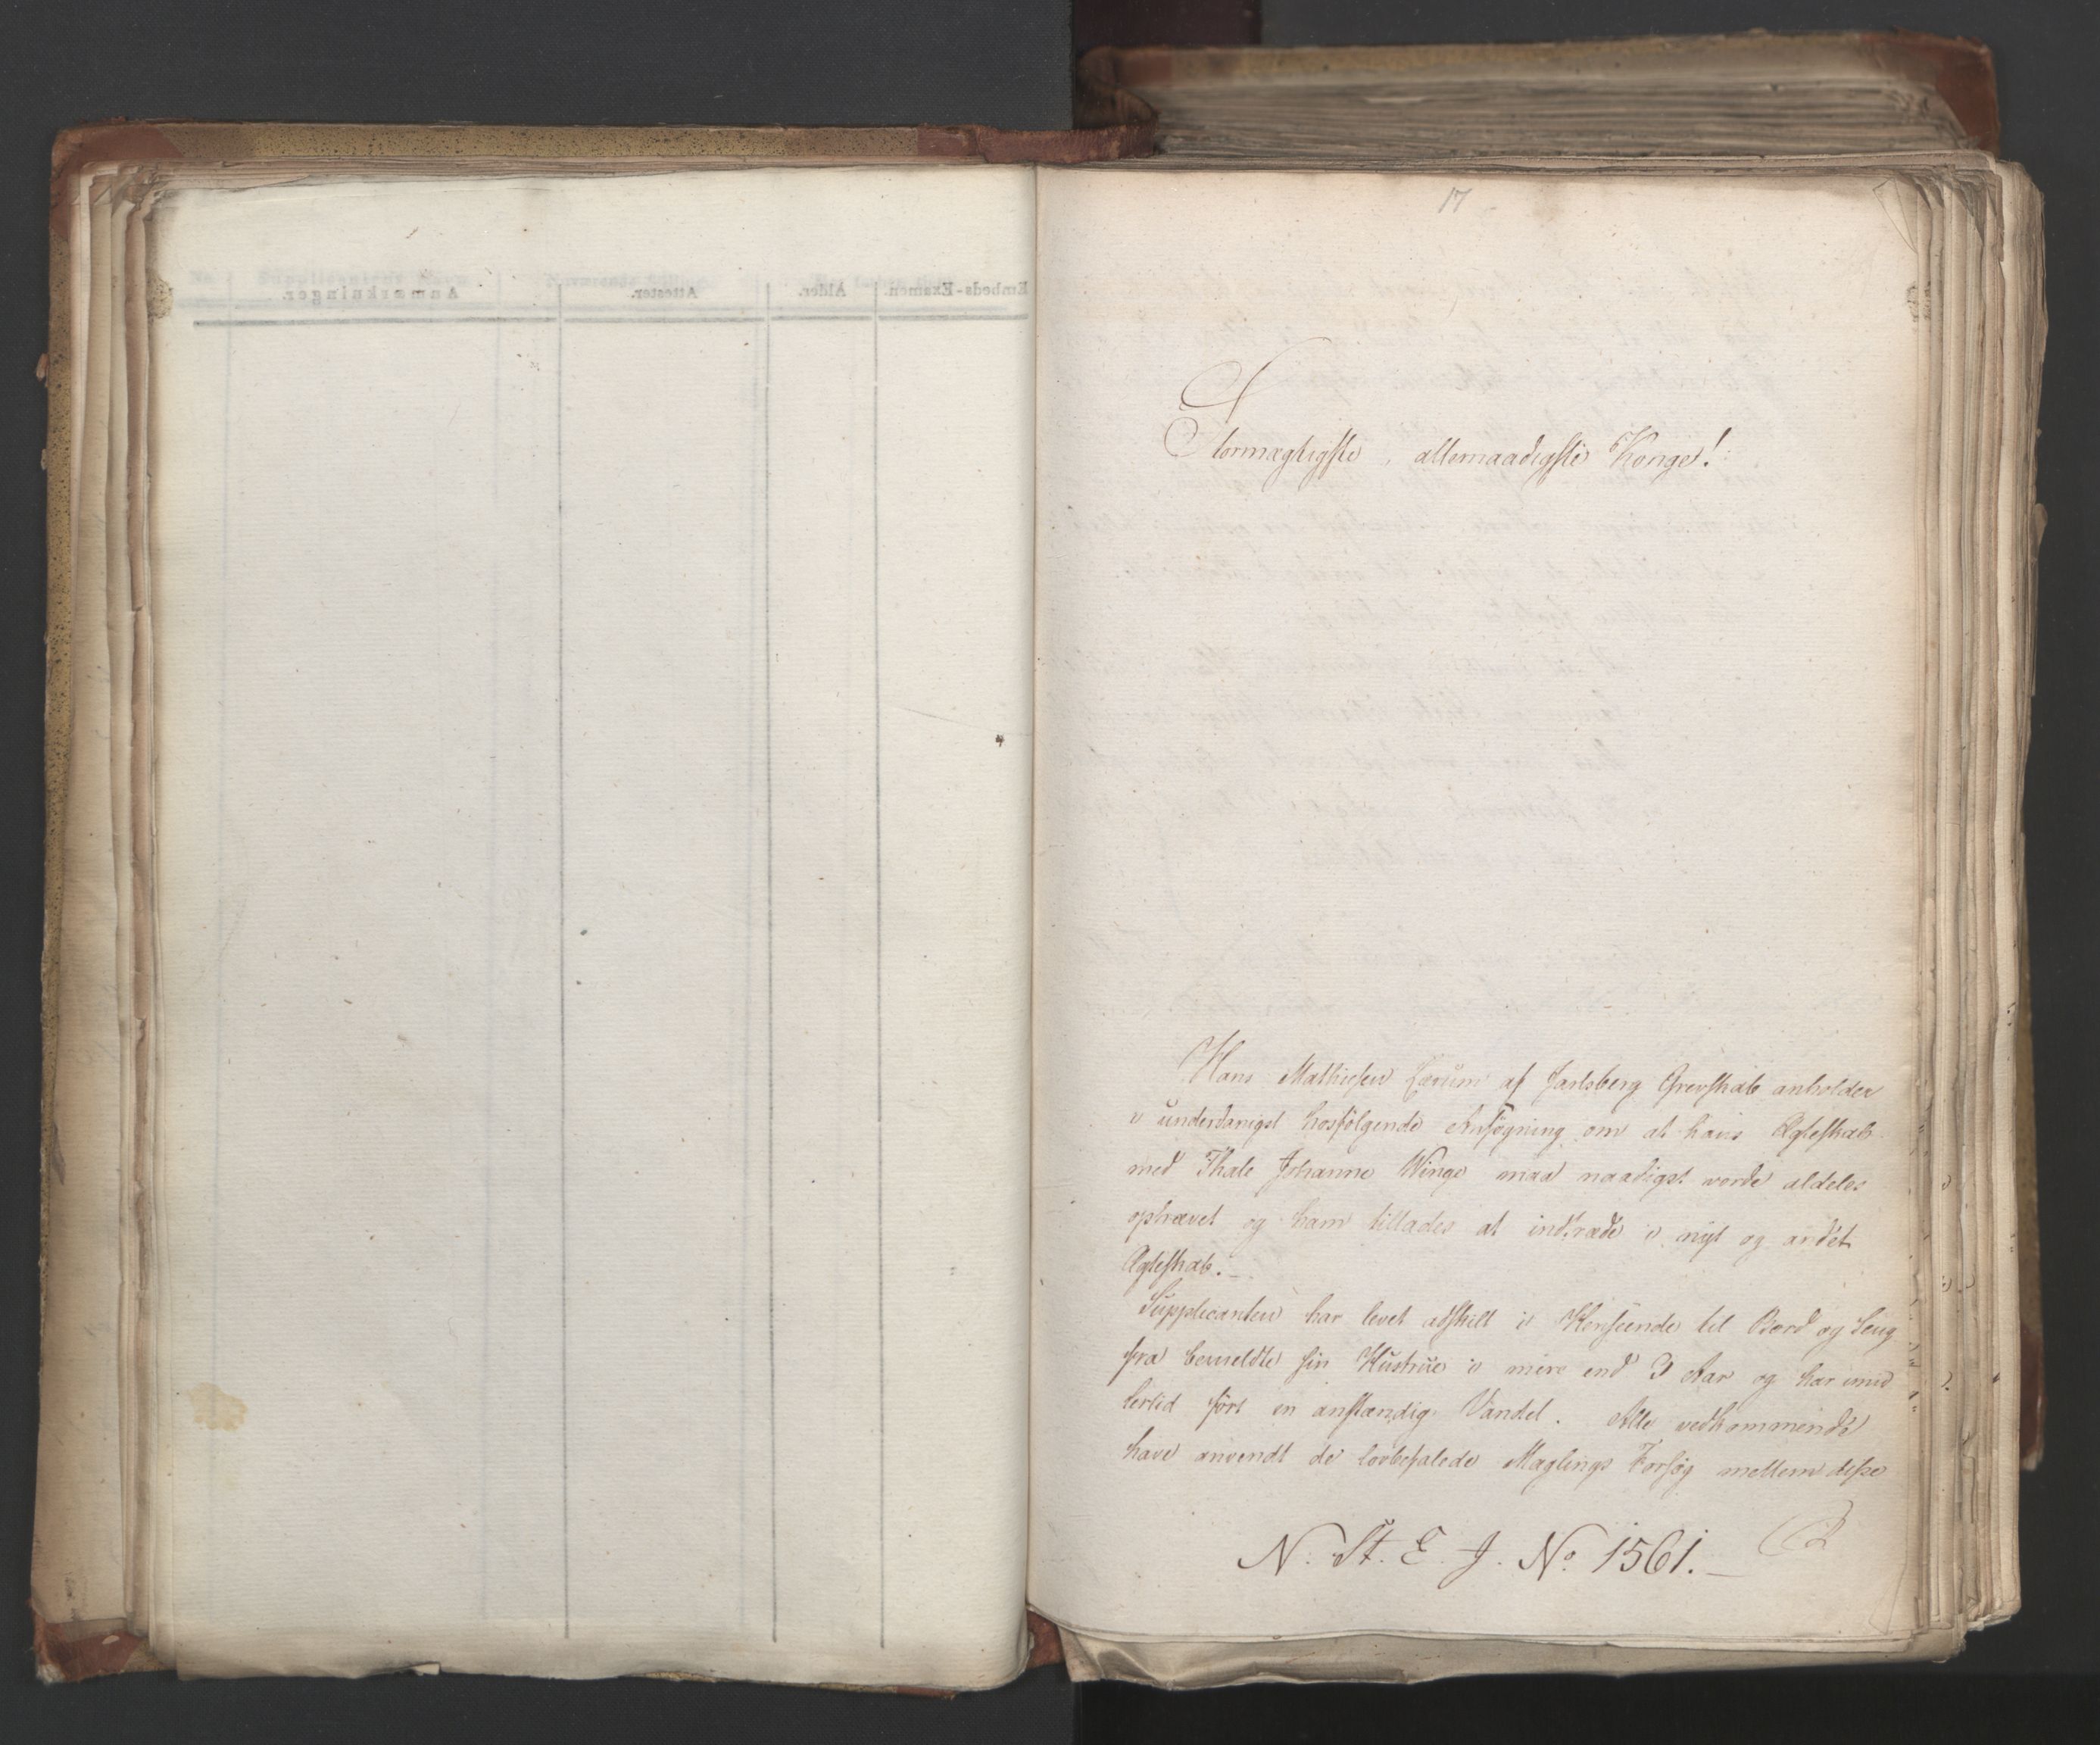 17
Stormægtigste, allernaadigste Konge!
Hans Mathiesen af Jarlsberg Grevskab anholder
i underdanigst hosfölgende Ansögning om at hans Ægteskab
med Thale Johanne Winge maa naadigst vorde aldeles
ophævet og ham tillades at indtræde i nyt og andet
Ægteskab.
Supplicanten har levet adskilt i Henseende til Bord og Seng
fra bemeldte sin Hustrue i mere end 3 Aar og har imid
lertid fört en anstændig Vandel. Alle vedkommende
have anvendt de lovbefalede Mæglings Forsög mellem disse
N. St. E. J. No 1561.